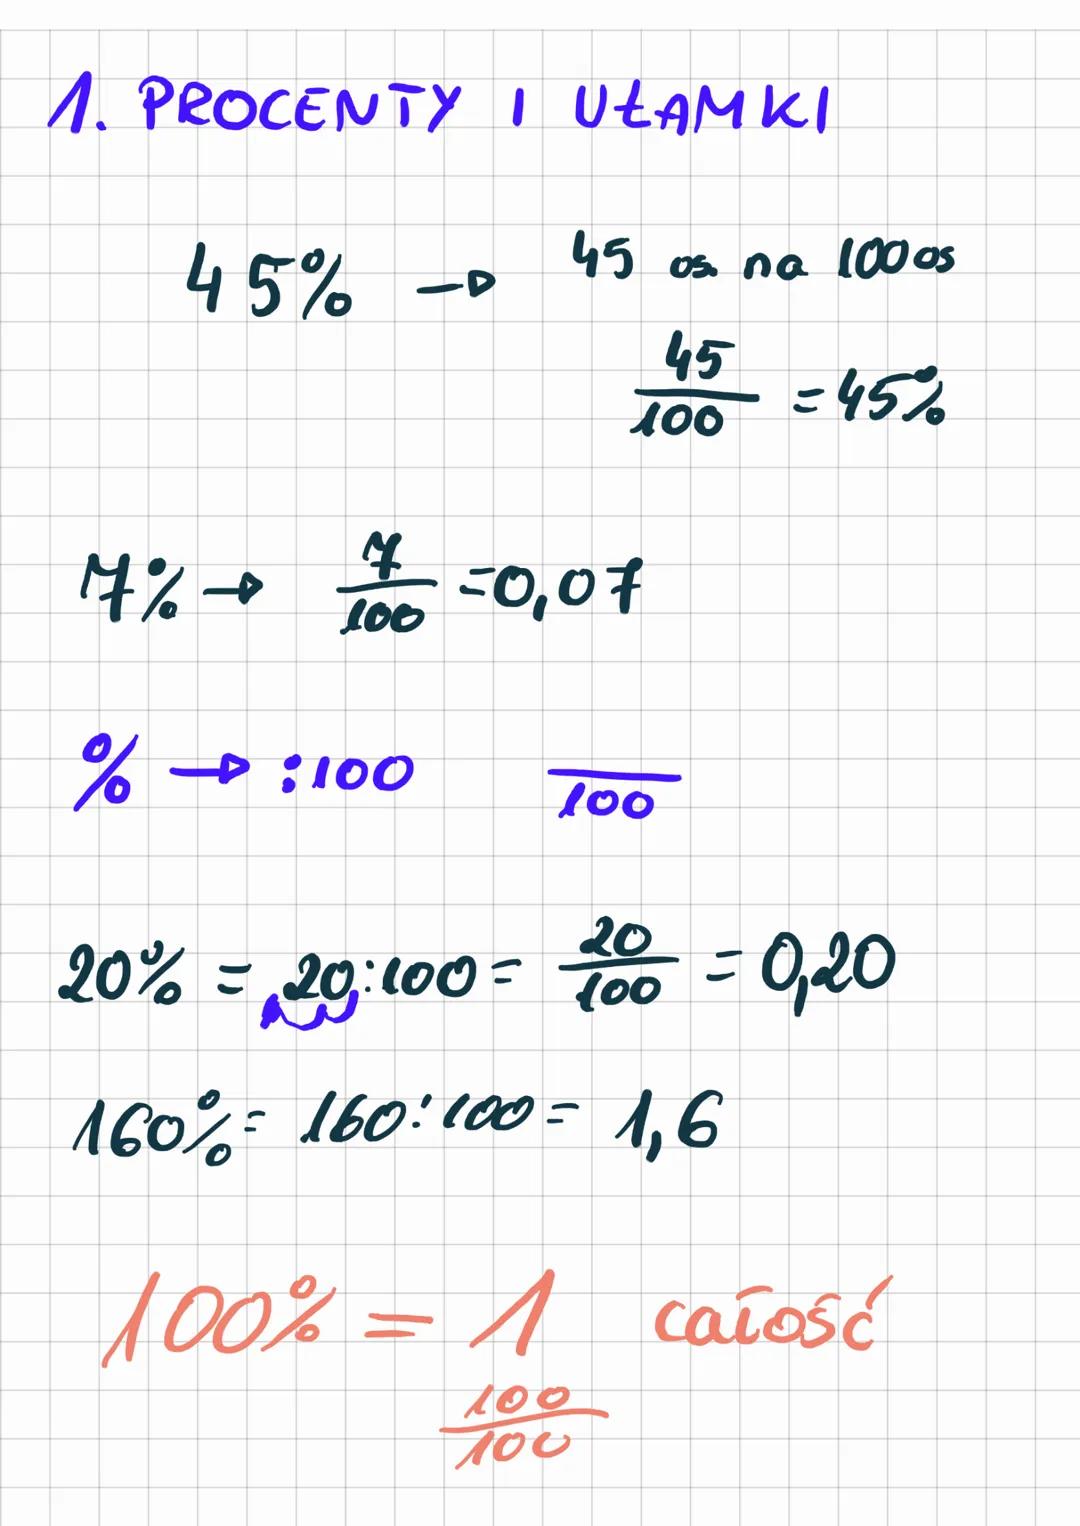 1. PROCENTY I UŁAMKI
45% → 45 os. na 100 os
45/100 = 45%
7% → 7/100 = 0,07
% → :100 /100
20% = 20:100 = 20/100 = 0,20
160% = 160:100 = 1,6
100% = 1 całość
100/100